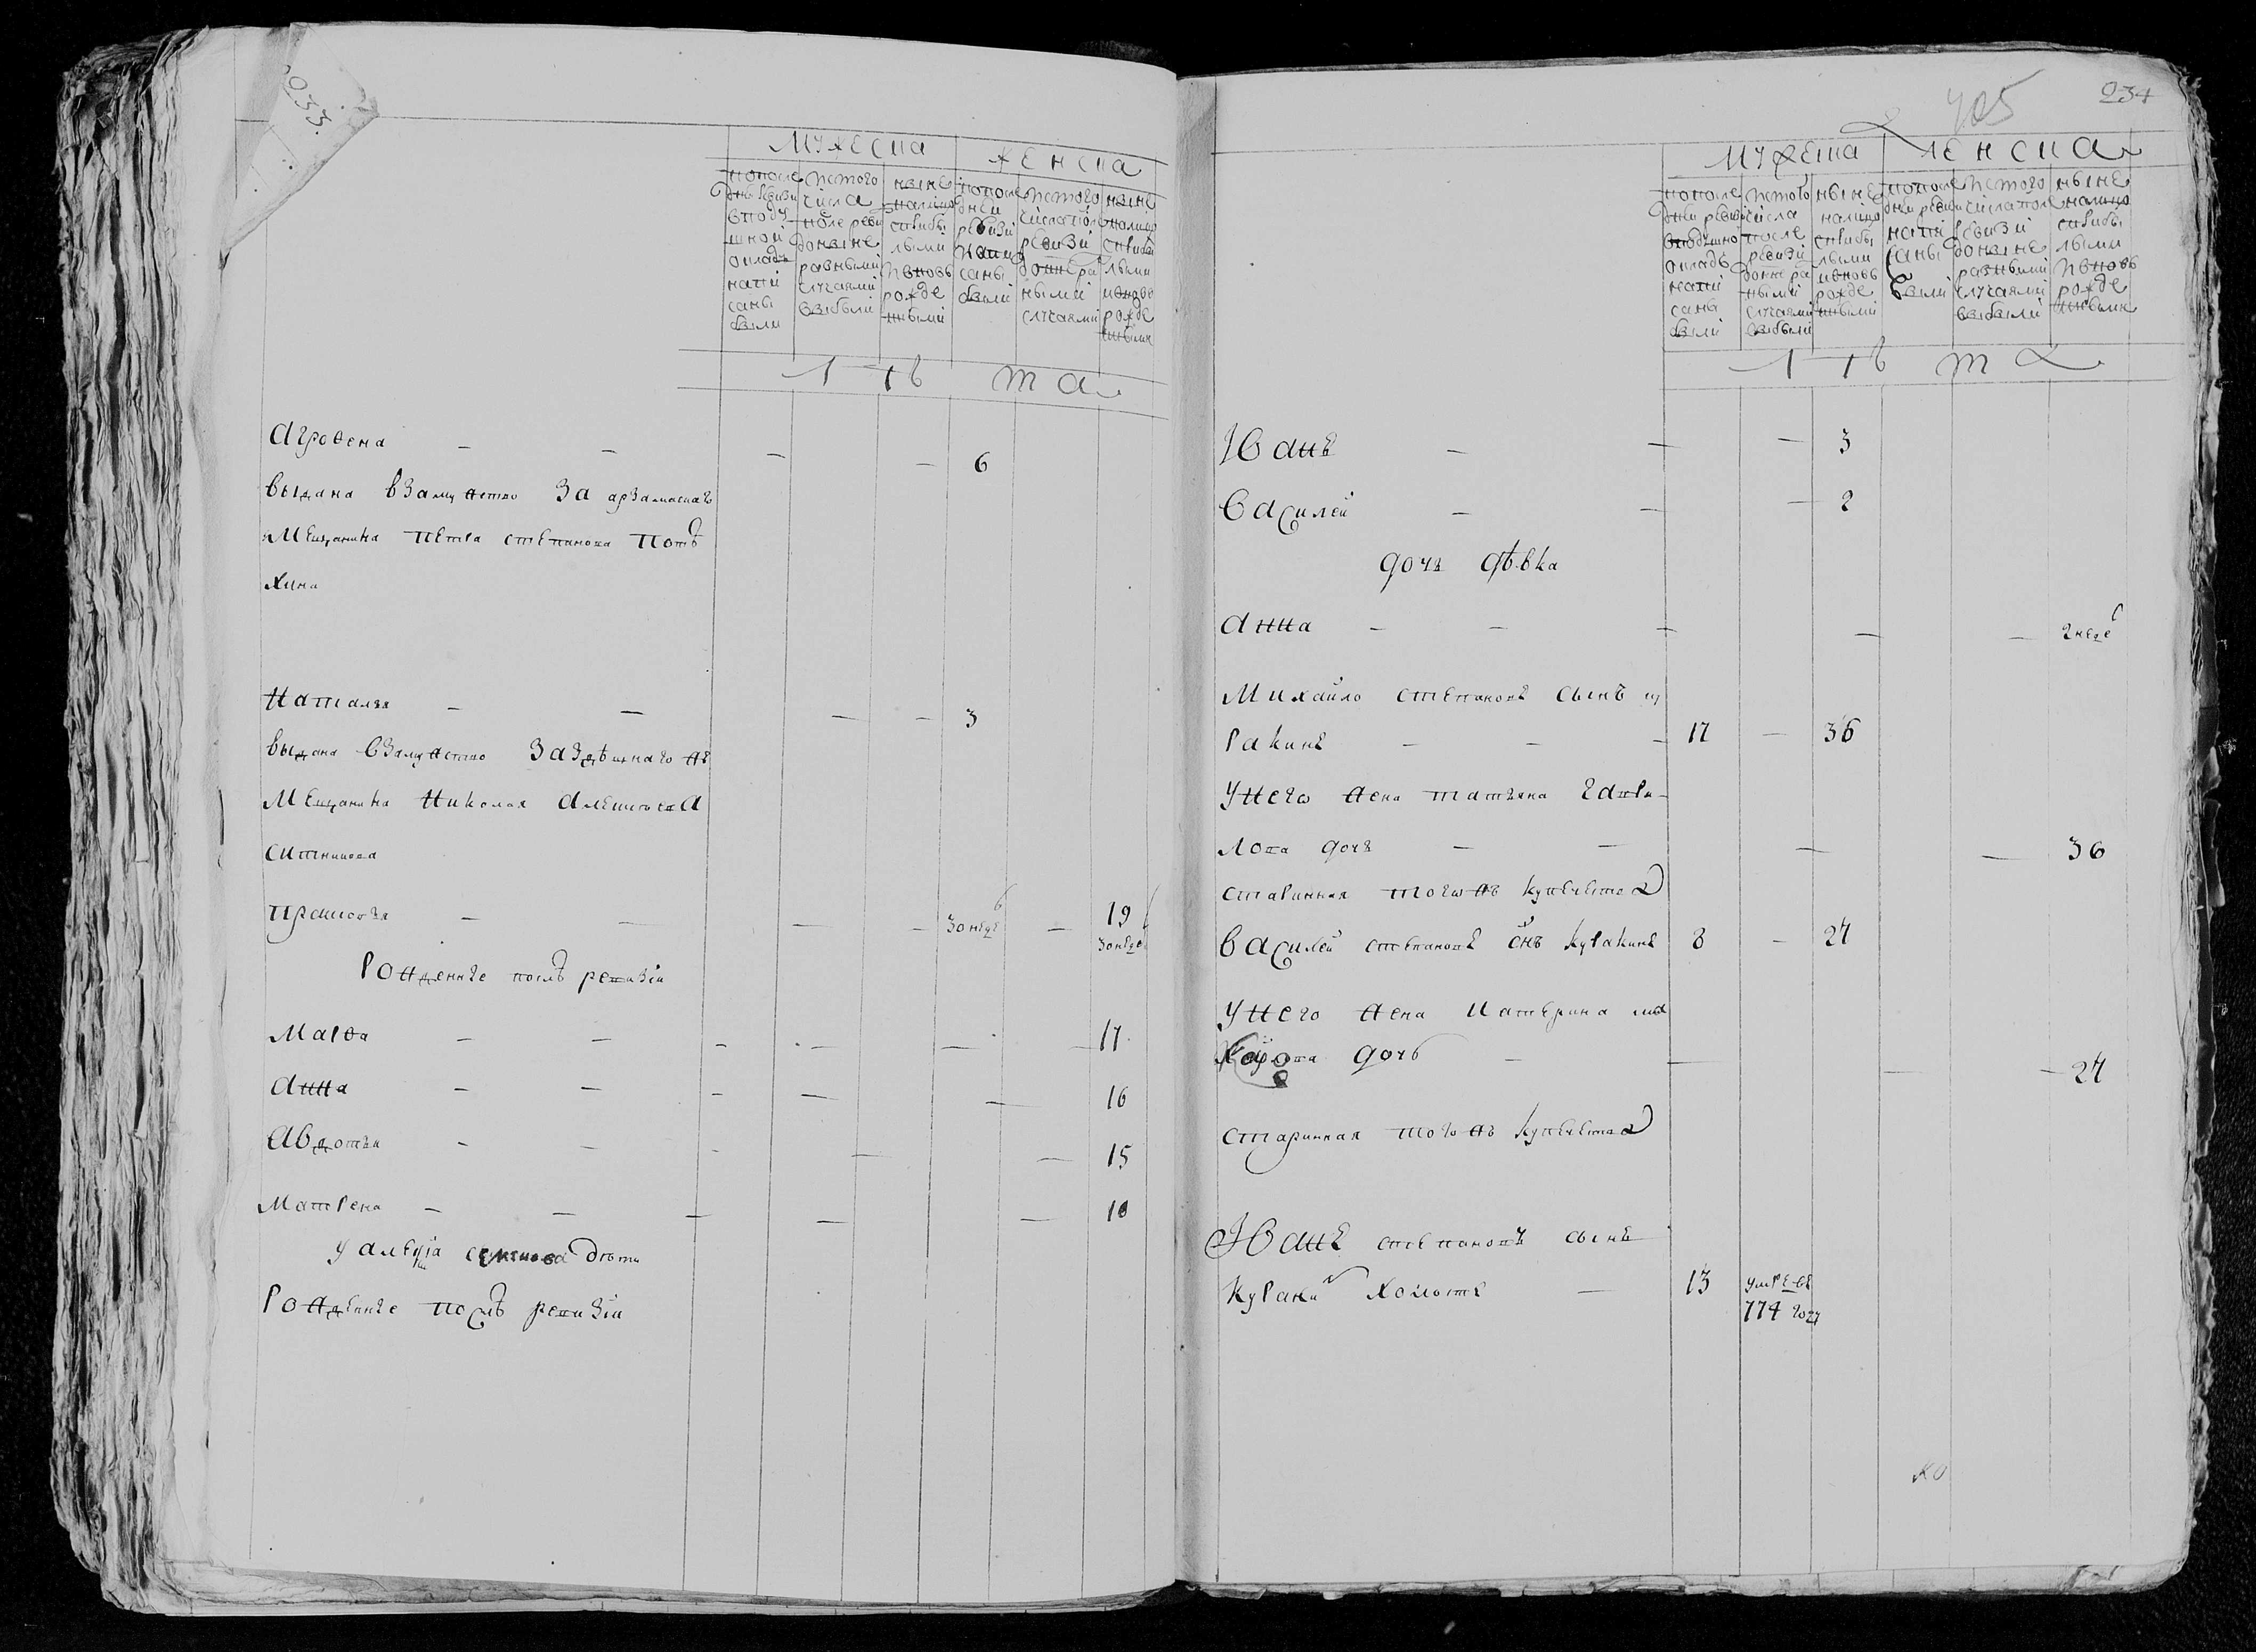 033.
мужеска женска
пополе дней ревизи вподу шной окладъ напи саны были
истого числа после реви доныне разными случаями выбыли
ныне налицо сприбы лыми ивновь рожде нными
пополе дней ревизи напи саны были
исторого числа после ревизи донне ра ными случаями
ныне налицо сприбы лыми ивновь рожде нными
лѣта
Агрофена 6
выдана взамужство за арзамаскаго
мещанина петра степанова потѣ
хина
Наталья 3
выдана взамужство заздѣшнаго жъ
мещанина Николая алексѣева
ситникова
прасковья 30 неде 19 30 неде
рожденые послѣ ревизiи
Марфа 17
анна 16
Авдотья 15
Матрена 10
у алексѣя дѣти
рожденые послѣ ревизiи
405
234
мужеска женска
пополе дней ревиз вподушно окладъ напи саны были
исторого числа после ревизи донне ра ными случаями выбыли
ныне налицо сприбы лыми ивновь рожде нными
пополе дней ревизи напи саны были
исторого числа после ревизи доныне разными случаями выбыли
ныне налицо сприбы лыми ивновь рожде нными
лѣта
Иванъ 3
Василей 2
дочь дѣвка
анна 2 неде
Михайло степановъ сынъ ку
ракинъ 17 36
Унего жена татьяна гаври
лова дочь 36
старинная тогожъ купечества
василей степановъ снъ куракинъ 8 27
Унего жена катерина
дочь 27
старинная тогожъ купечества
Иванъ степановъ сынъ
куракин холостъ 13 умре въ
774 году